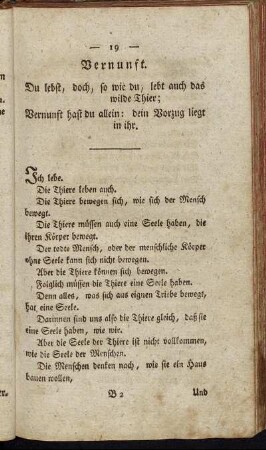 — 19 —
Vernunft.
Du lebst, doch, so wie du, lebt auch das
wilde Thier;
Vernunft hast du allein: dein Vorzug liegt
in ihr.
Ich lebe.
Die Thiere leben auch.
Die Thiere bewegen sich, wie sich der Mensch
bewegt.
Die Thiere müssen auch eine Seele haben, die
ihren Körper bewegt.
Der todte Mensch, oder der menschliche Körper
ohne Seele kann sich nicht bewegen.
Aber die Thiere können sich bewegen.
Folglich müssen die Thiere eine Seele haben.
Denn alles, was sich aus eignen Triebe bewegt,
hat eine Seele.
Darinnen sind uns also die Thiere gleich, daß sie
eine Seele haben, wie wir.
Aber die Seele der Thiere ist nicht vollkommen,
wie die Seele der Menschen.
Die Menschen denken nach, wie sie ein Haus
bauen wollen,
B 2 Und